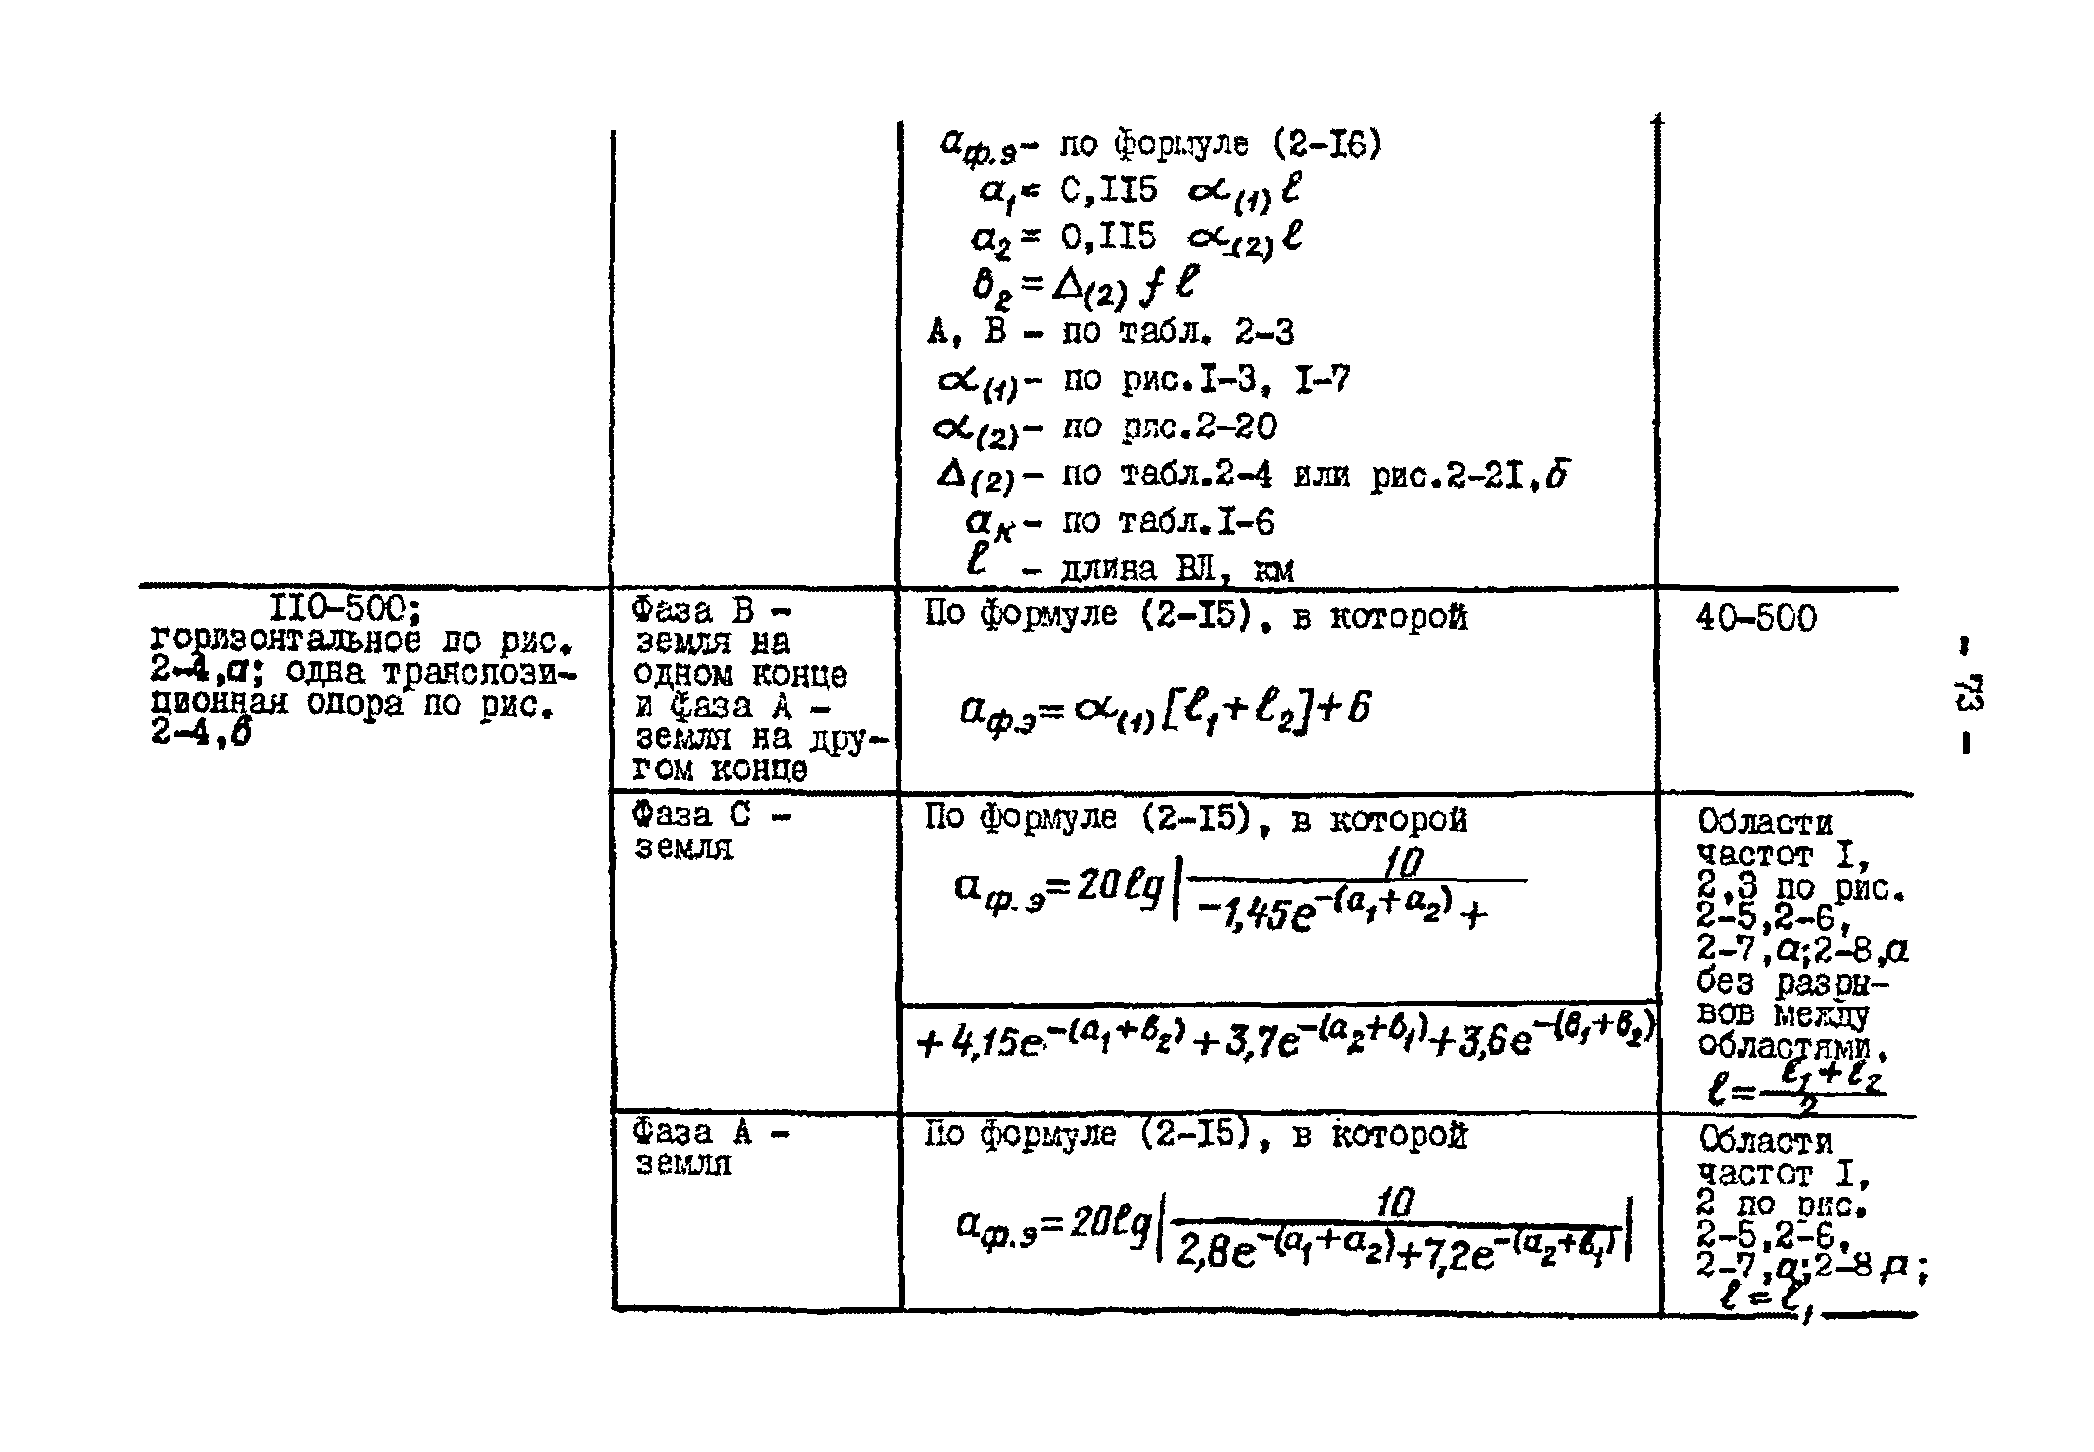 aф.э – по формуле (2-I6)
a₁ = 0,II5 α(1) ℓ
a₂ = 0,II5 α(2) ℓ
в₂ = Δ(2) f ℓ
А, В – по табл. 2-3
α(1) – по рис.I-3, I-7
α(2) – по рис.2-20
Δ(2) – по табл.2-4 или рис.2-2I,б
aк – по табл.I-6
ℓ – длина ВЛ, км
II0-500;
горизонтальное по рис.
2-4,а; одна транспози-
ционная опора по рис.
2-4,в
Фаза В -
земля на
одном конце
и фаза А -
земля на дру-
гом конце
По формуле (2-I5), в которой
aф.э = α(1) [ℓ₁ + ℓ₂] + 6
40-500
Фаза С -
земля
По формуле (2-I5), в которой
aф.э = 20 lg | 10
-1,45e^-(a₁+a₂) +
+ 4,15e^-(a₁+в₂) + 3,7e^-(a₂+в₁) + 3,6e^-(в₁+в₂)
Области
частот I,
2,3 по рис.
2-5,2-6,
2-7,а;2-8,а
без разры-
вов между
областями.
ℓ = ℓ₁ + ℓ₂
2
Фаза А -
земля
По формуле (2-I5), в которой
aф.э = 20 lg | 10 |
2,8e^-(a₁+a₂) + 7,2e^-(a₂+в₁)
Области
частот I,
2 по рис.
2-5,2-6,
2-7,а;2-8,а;
ℓ = ℓ₁
- 73 -